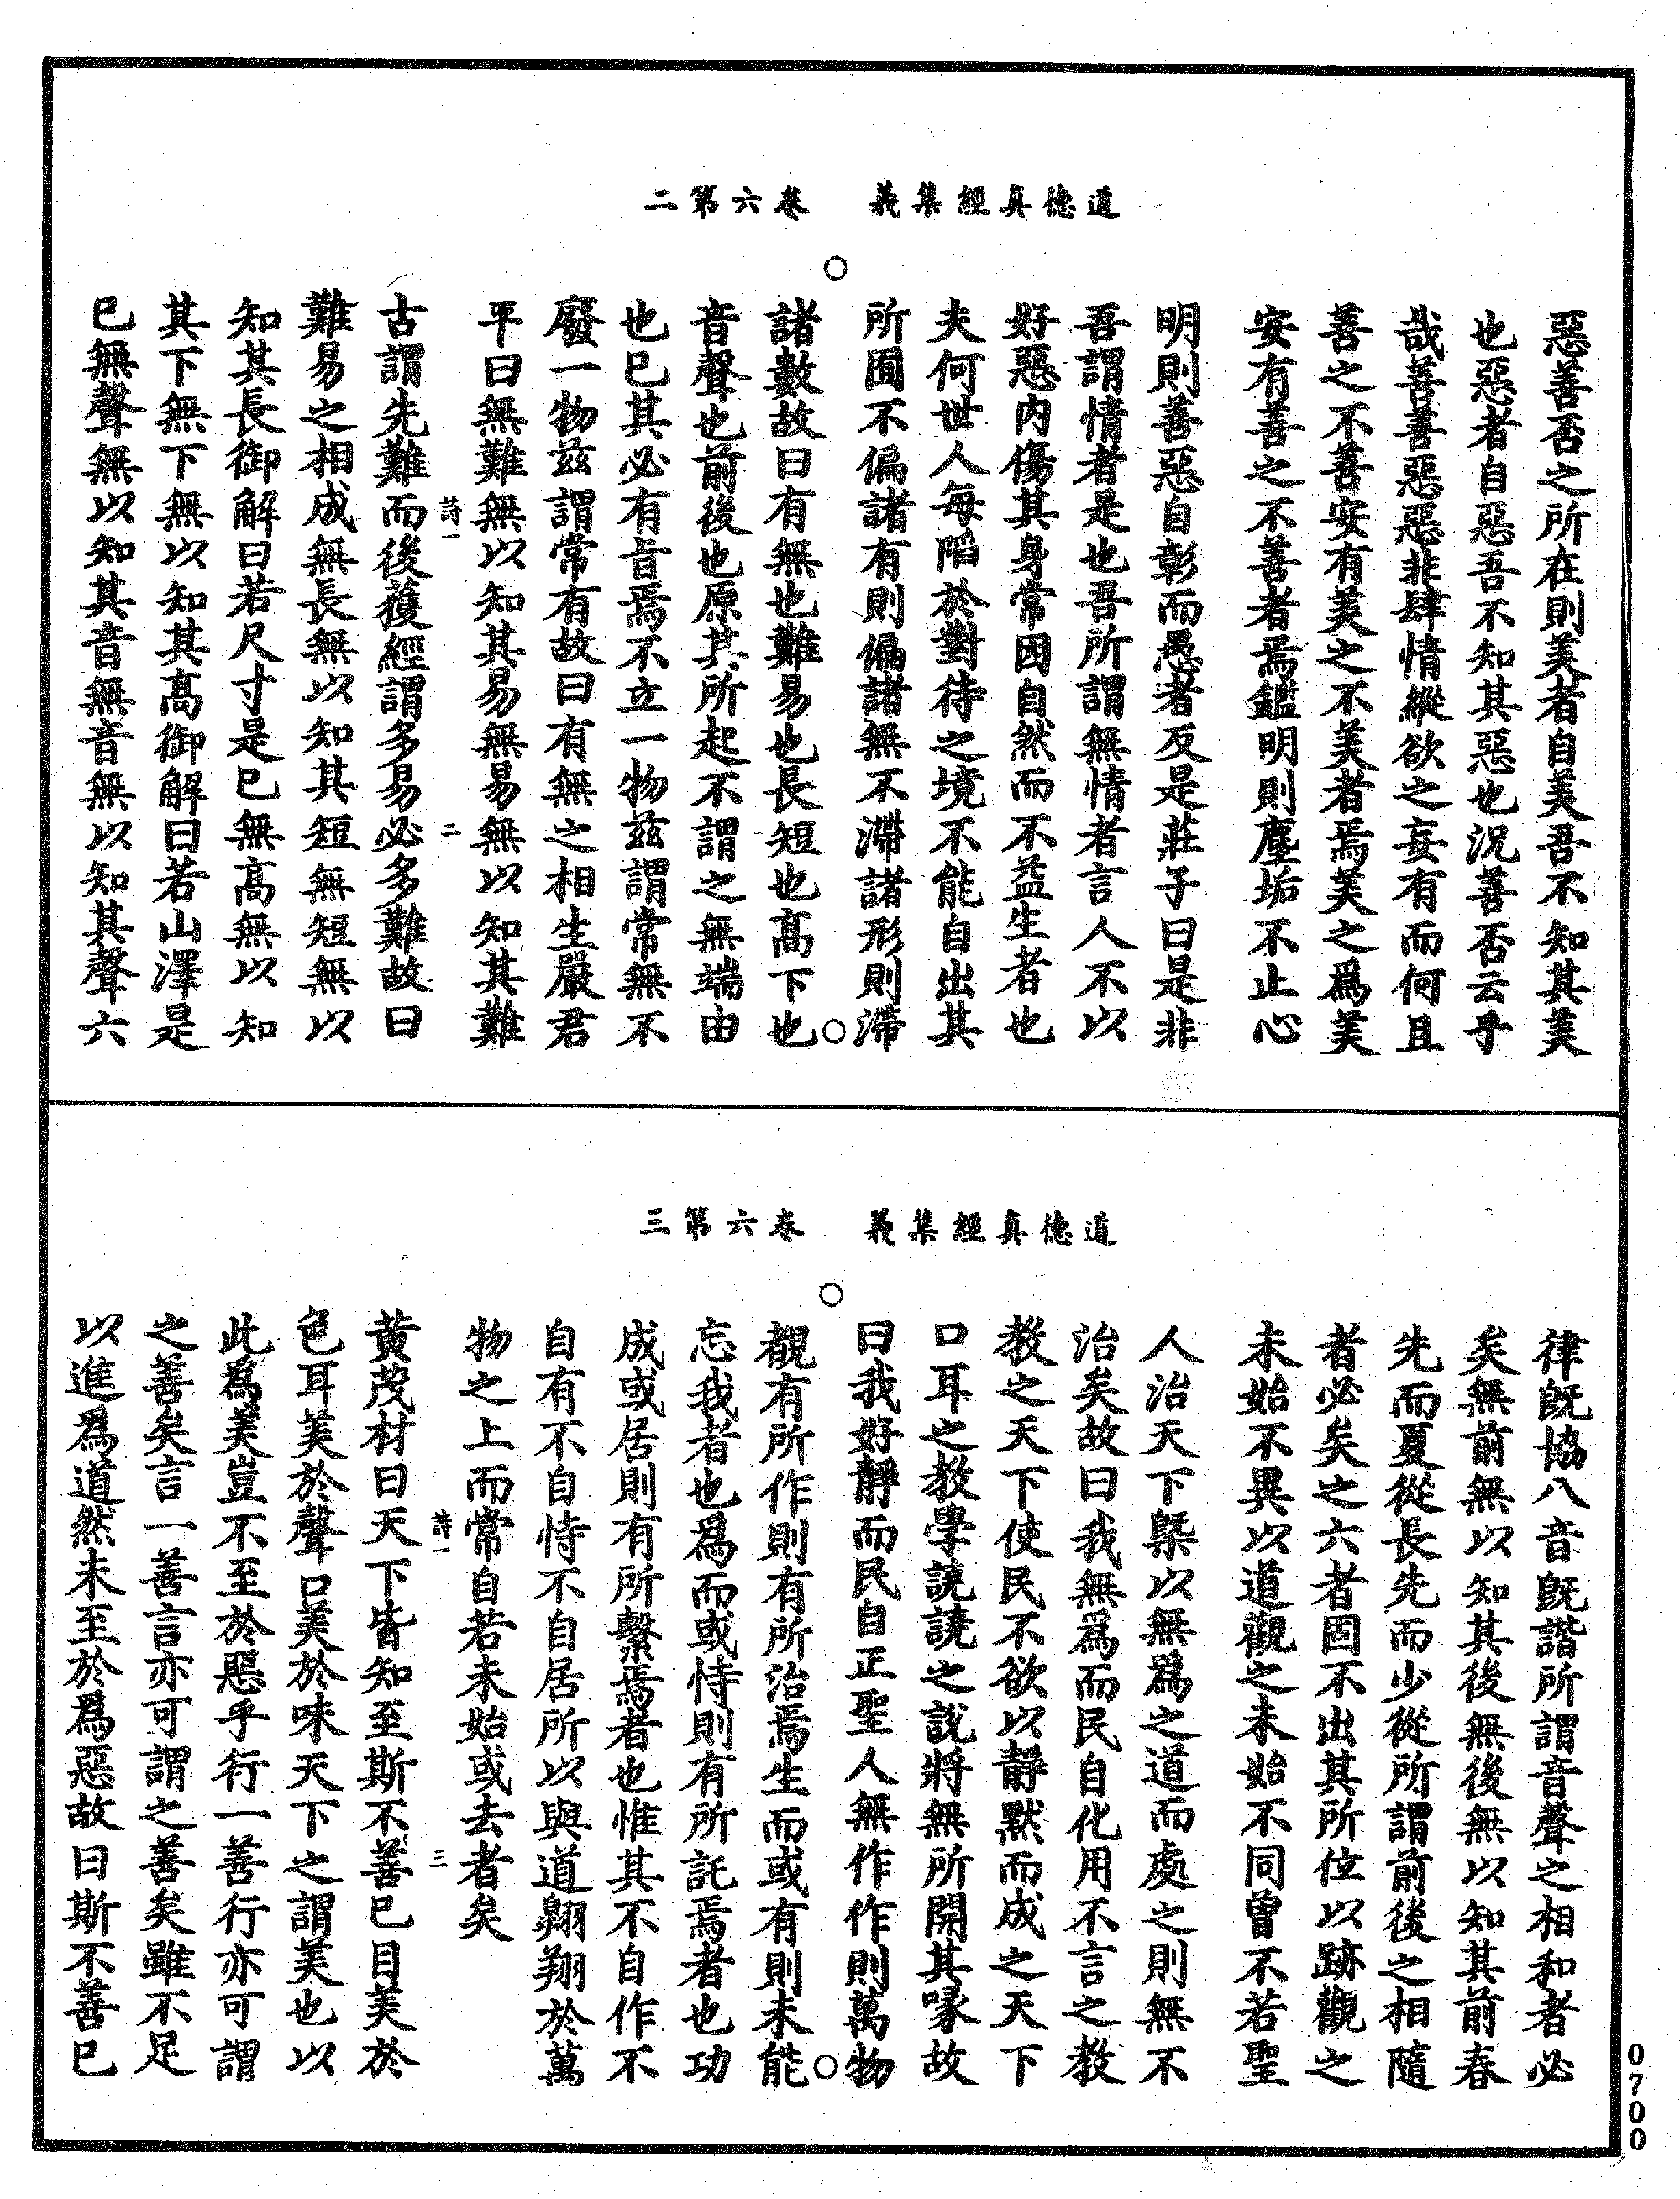 道德真經集義　卷六第二
惡善否之所在則美者自美吾不知其美
也惡者自惡吾不知其惡也況善否云乎
哉善善惡惡非肆情縱欲之妄有而何且
善之不善安有美之不美者焉美之爲美
安有善之不善者焉鑑明則塵垢不止心
明則善惡自彰而愚者反是莊子曰是非
吾謂情者是也吾所謂無情者言人不以
好惡內傷其身常因自然而不益生者也
夫何世人每陷於對待之境不能自出其
所囿不偏諸有則偏諸無不滯諸形則滯
諸數故曰有無也難易也長短也高下也
音聲也前後也原其所起不謂之無端由
也已其必有旨焉不立一物茲謂常無不
廢一物茲謂常有故曰有無之相生嚴君
平曰無難無以知其易無易無以知其難
詩一　二
古謂先難而後獲經謂多易必多難故曰
難易之相成無長無以知其短無短無以
知其長御解曰若尺寸是已無高無以知
其下無下無以知其高御解曰若山澤是
已無聲無以知其音無音無以知其聲六
道德真經集義　卷六第三
律旣協八音旣諧所謂音聲之相和者必
矣無前無以知其後無後無以知其前春
先而夏從長先而少從所謂前後之相隨
者必矣之六者固不出其所位以跡觀之
未始不異以道觀之未始不同曾不若聖
人治天下槩以無爲之道而處之則無不
治矣故曰我無爲而民自化用不言之教
教之天下使民不欲以靜默而成之天下
口耳之教學譊譊之說將無所開其喙故
曰我好靜而民自正聖人無作作則萬物
覩有所作則有所治焉生而或有則未能
忘我者也爲而或恃則有所託焉者也功
成或居則有所繫焉者也惟其不自作不
自有不自恃不自居所以與道翱翔於萬
物之上而常自若未始或去者矣
詩一　三
黃茂材曰天下皆知至斯不善已目美於
色耳美於聲口美於味天下之謂美也以
此爲美豈不至於惡乎行一善行亦可謂
之善矣言一善言亦可謂之善矣雖不足
以進爲道然未至於爲惡故曰斯不善已
0700